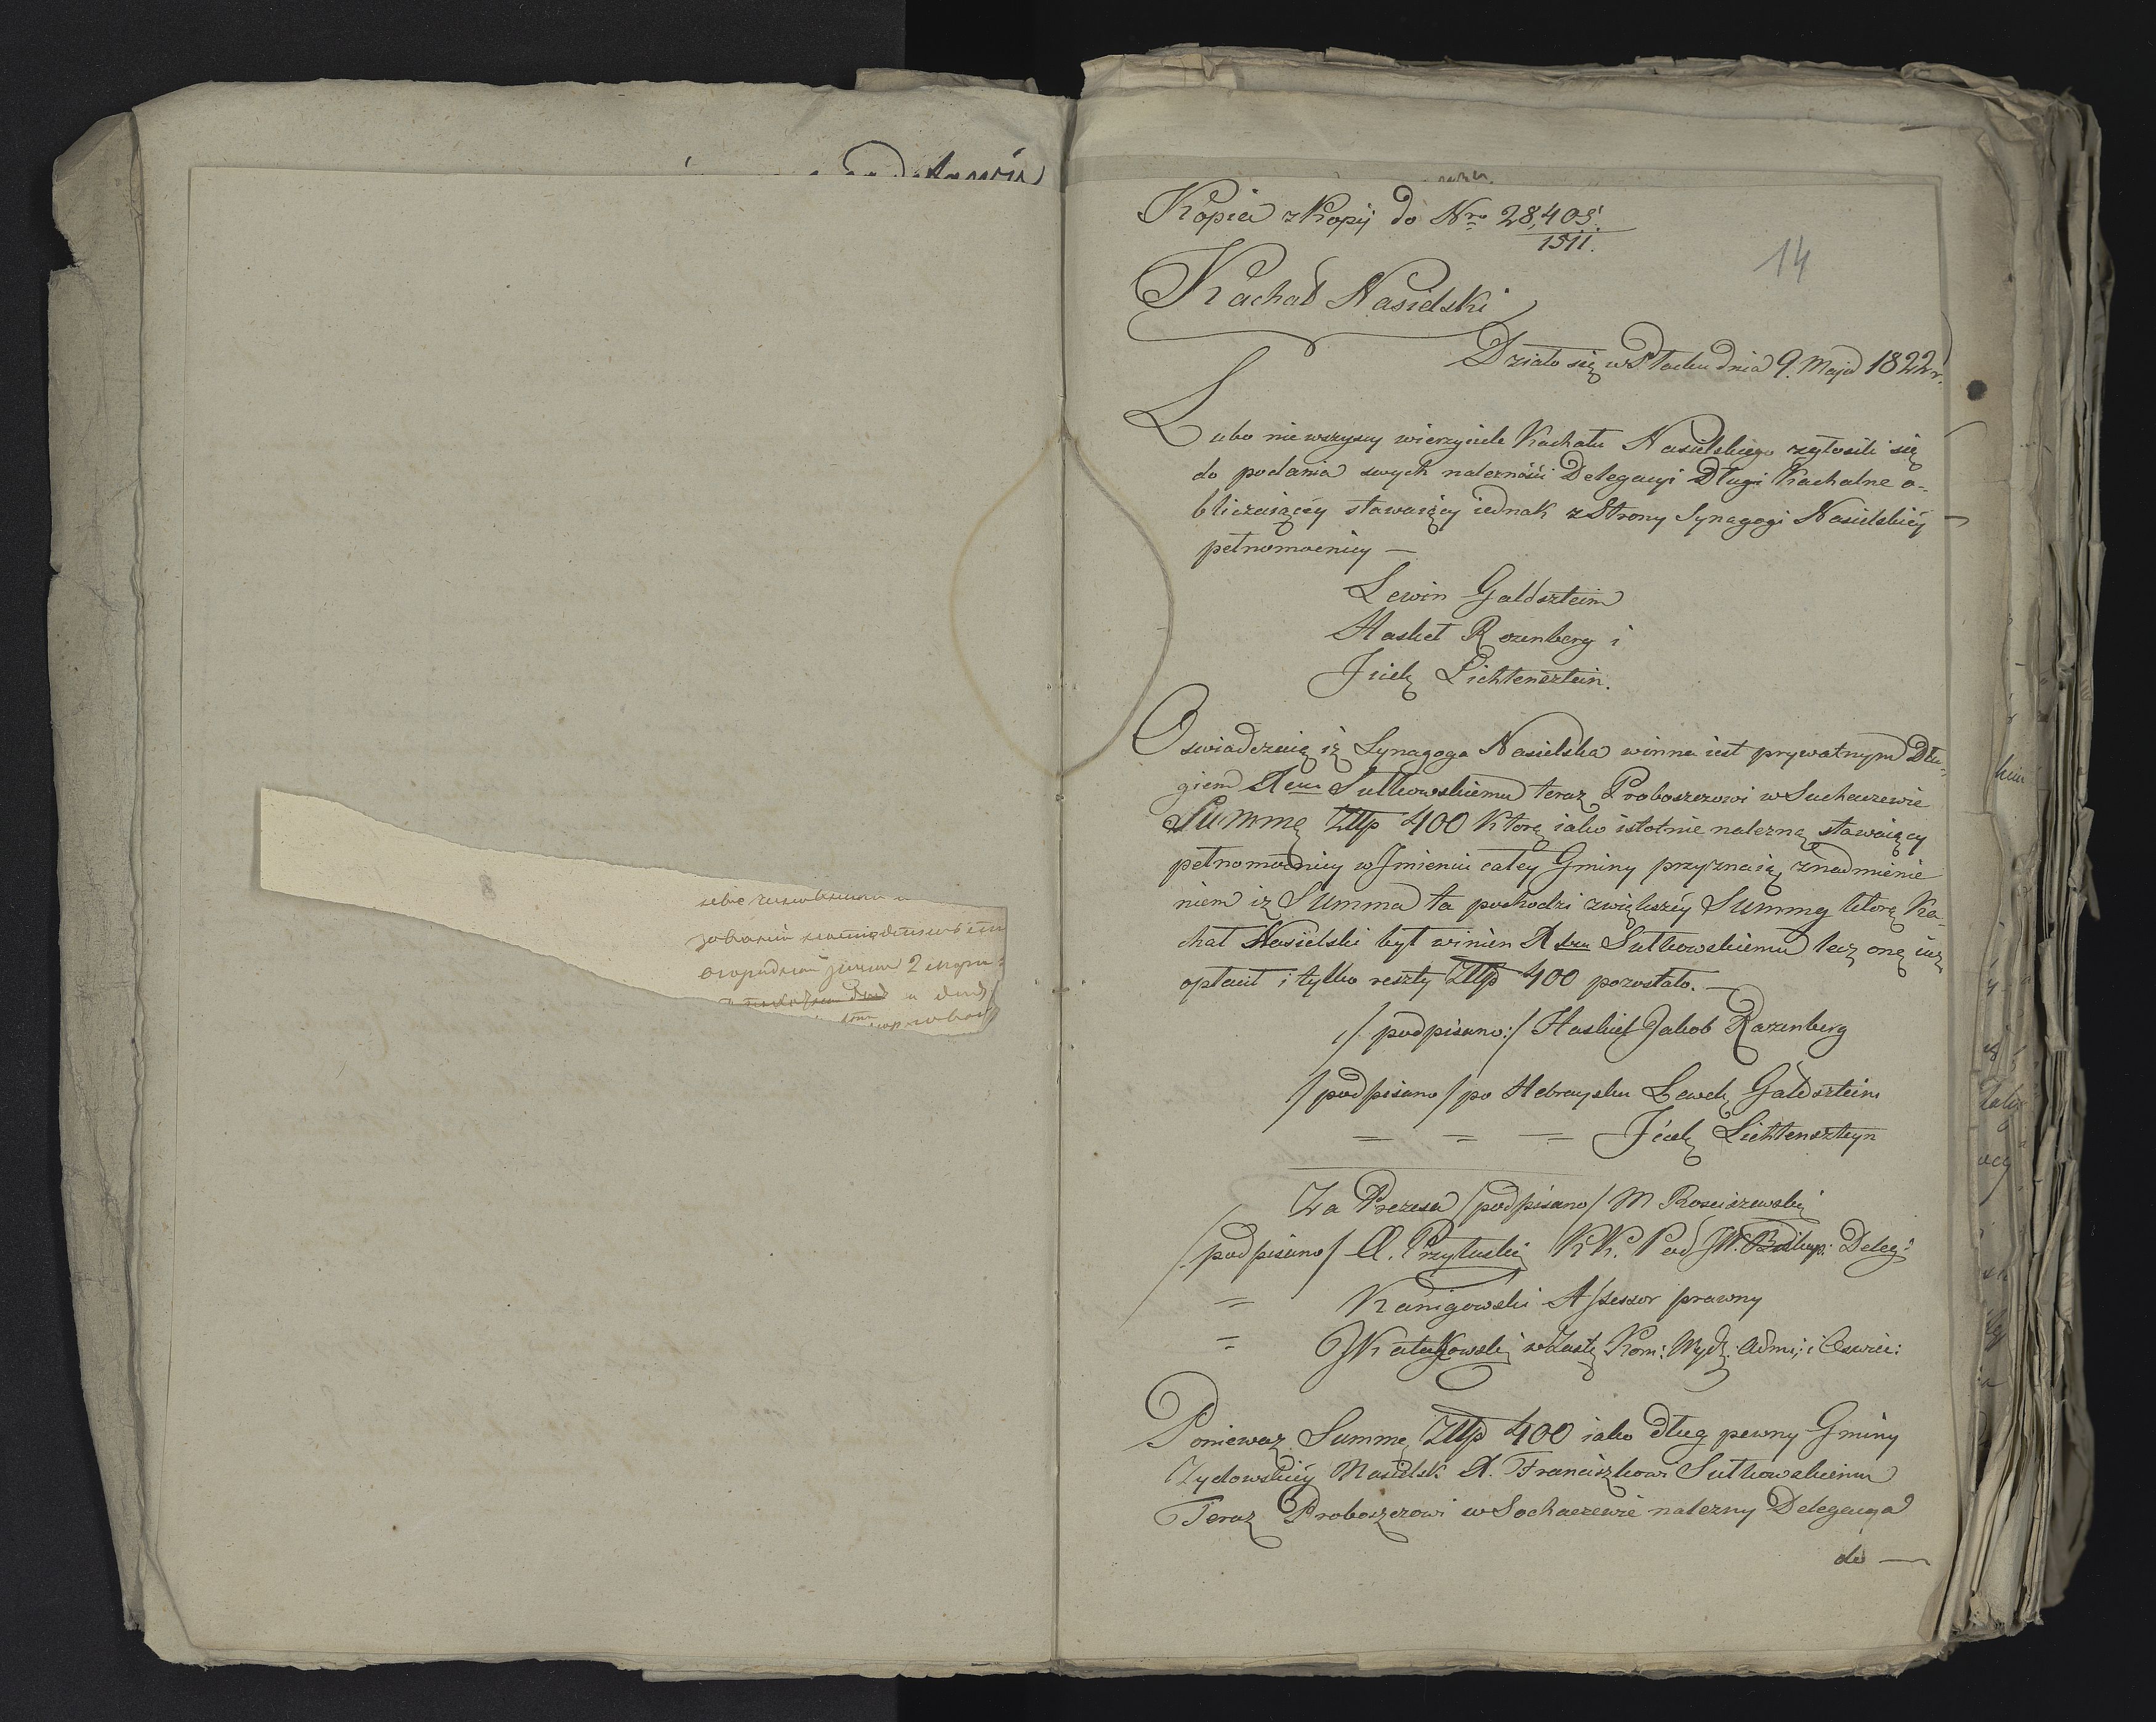 Kopia z Kopij do Nro 28,405.
1511.
14
Kachał Nasielski
Działo się w Płocku dnia 9. Maja 1822 r.
Lubo nie wszyscy wierzyciele Kachału Nasielskiego zgłosili się
do podania swych należności Delegacyi Długi Kachalne o-
bliczaiącey stawaiący iednak z Strony Synagogi Nasielskiey
pełnomocnicy —
Lewin Goldsztein
Haskel Rozenberg i
Jcek Lichtensztein.
Oswiadczaią iż Synagoga Nasielska winna iest prywatnym Dłu-
giem Xiędzu Sutkowskiemu teraz Proboszczowi w Suchaczewie
Summę Złłp 400 Ktorą iako istotnie nalezną stawaiący
pełnomocnicy w Jmieniu całey Gminy przyznaią, z nadmienie
niem iż Summa ta pochodzi z większéy Summy ktorą Ka-
chał Nasielski był winien X Sutkowskiemu lecz oną iuż
opłacił i tylko reszty Złłp 400 pozostało. —
/: podpisano:/ Haskiel Jakob Rozenberg
/podpisano/ po Hebraysku Lewek Goldsztein
= = = Jcek Lichtenszteyn
Za Prezesa /podpisano/ M Rosciszewski
/podpisano/ A. Przyłuski KK. Pod JW. Biskup. Deleg:
= Kanigowski Assessor prawny
= w Zast: Kom: Wydz: Admi: i Oswie:
Poniewaz Summę Złłp 400 iako dług pewny Gminy
Zydowskiéy Nasielsk X. Franciszkowi Sutkowskiemu
Teraz Proboszczowi w Sochaczewie nalezny Delegacya
do —